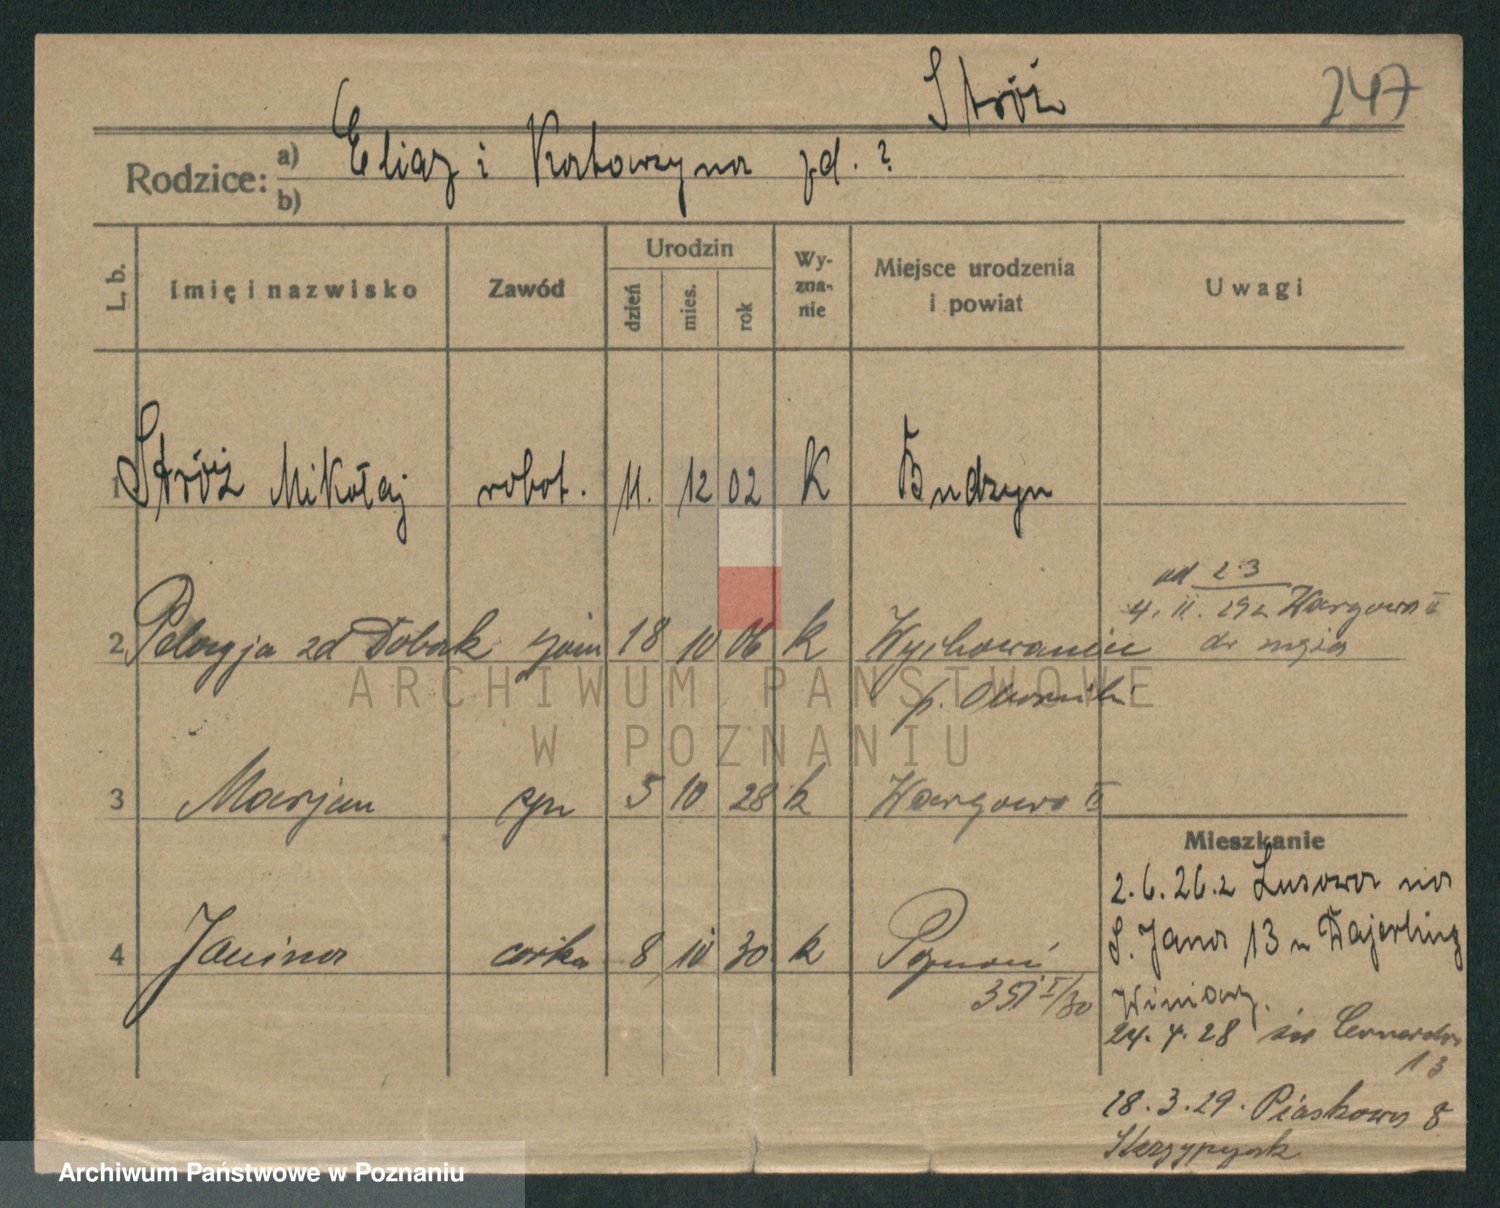 Stróż 247
Rodzice: a) Eljasz i Katarzyna zd. ?
b)
L. b. Imię i nazwisko Zawód Urodzin dzień mies. rok Wyznanie Miejsce urodzenia i powiat Uwagi
1 Stróż Mikołaj robot. 11. 12 02 K Budzyn
od 2.3
4. 11. 29 z Wargowo
2 Pelagja zd Dobak żona 18 10 06 k Wychowaniec do męża
p. Oborniki
3 Marjan syn 5 10 28 k Wargowo
Mieszkanie
2.6.26 z Lusowa na
Ś. Jana 13 u
4 Janina córka 8 10 30 k Poznań
351 I/30
Winiary.
24. 4. 28 św Leonarda
13
18. 3. 29. Piaskowa 8
Skrzypczak
ARCHIWUM PAŃSTWOWE
W POZNANIU
Archiwum Państwowe w Poznaniu